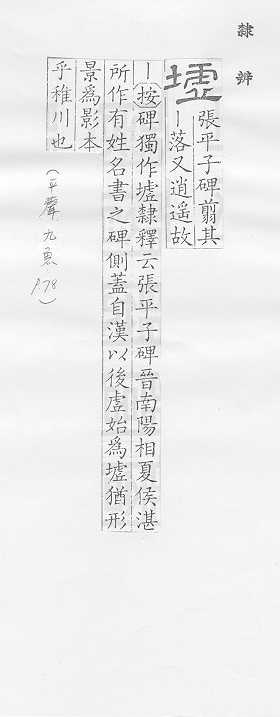 隸辨
墟
張平子碑翦其
｜落又逍遙故
｜按碑獨作墟隸釋云張平子碑晉南陽相夏侯湛
所作有姓名書之碑側蓋自漢以後虛始為墟猶形
景為影本
乎稚川也
(平聲九魚 P.78)